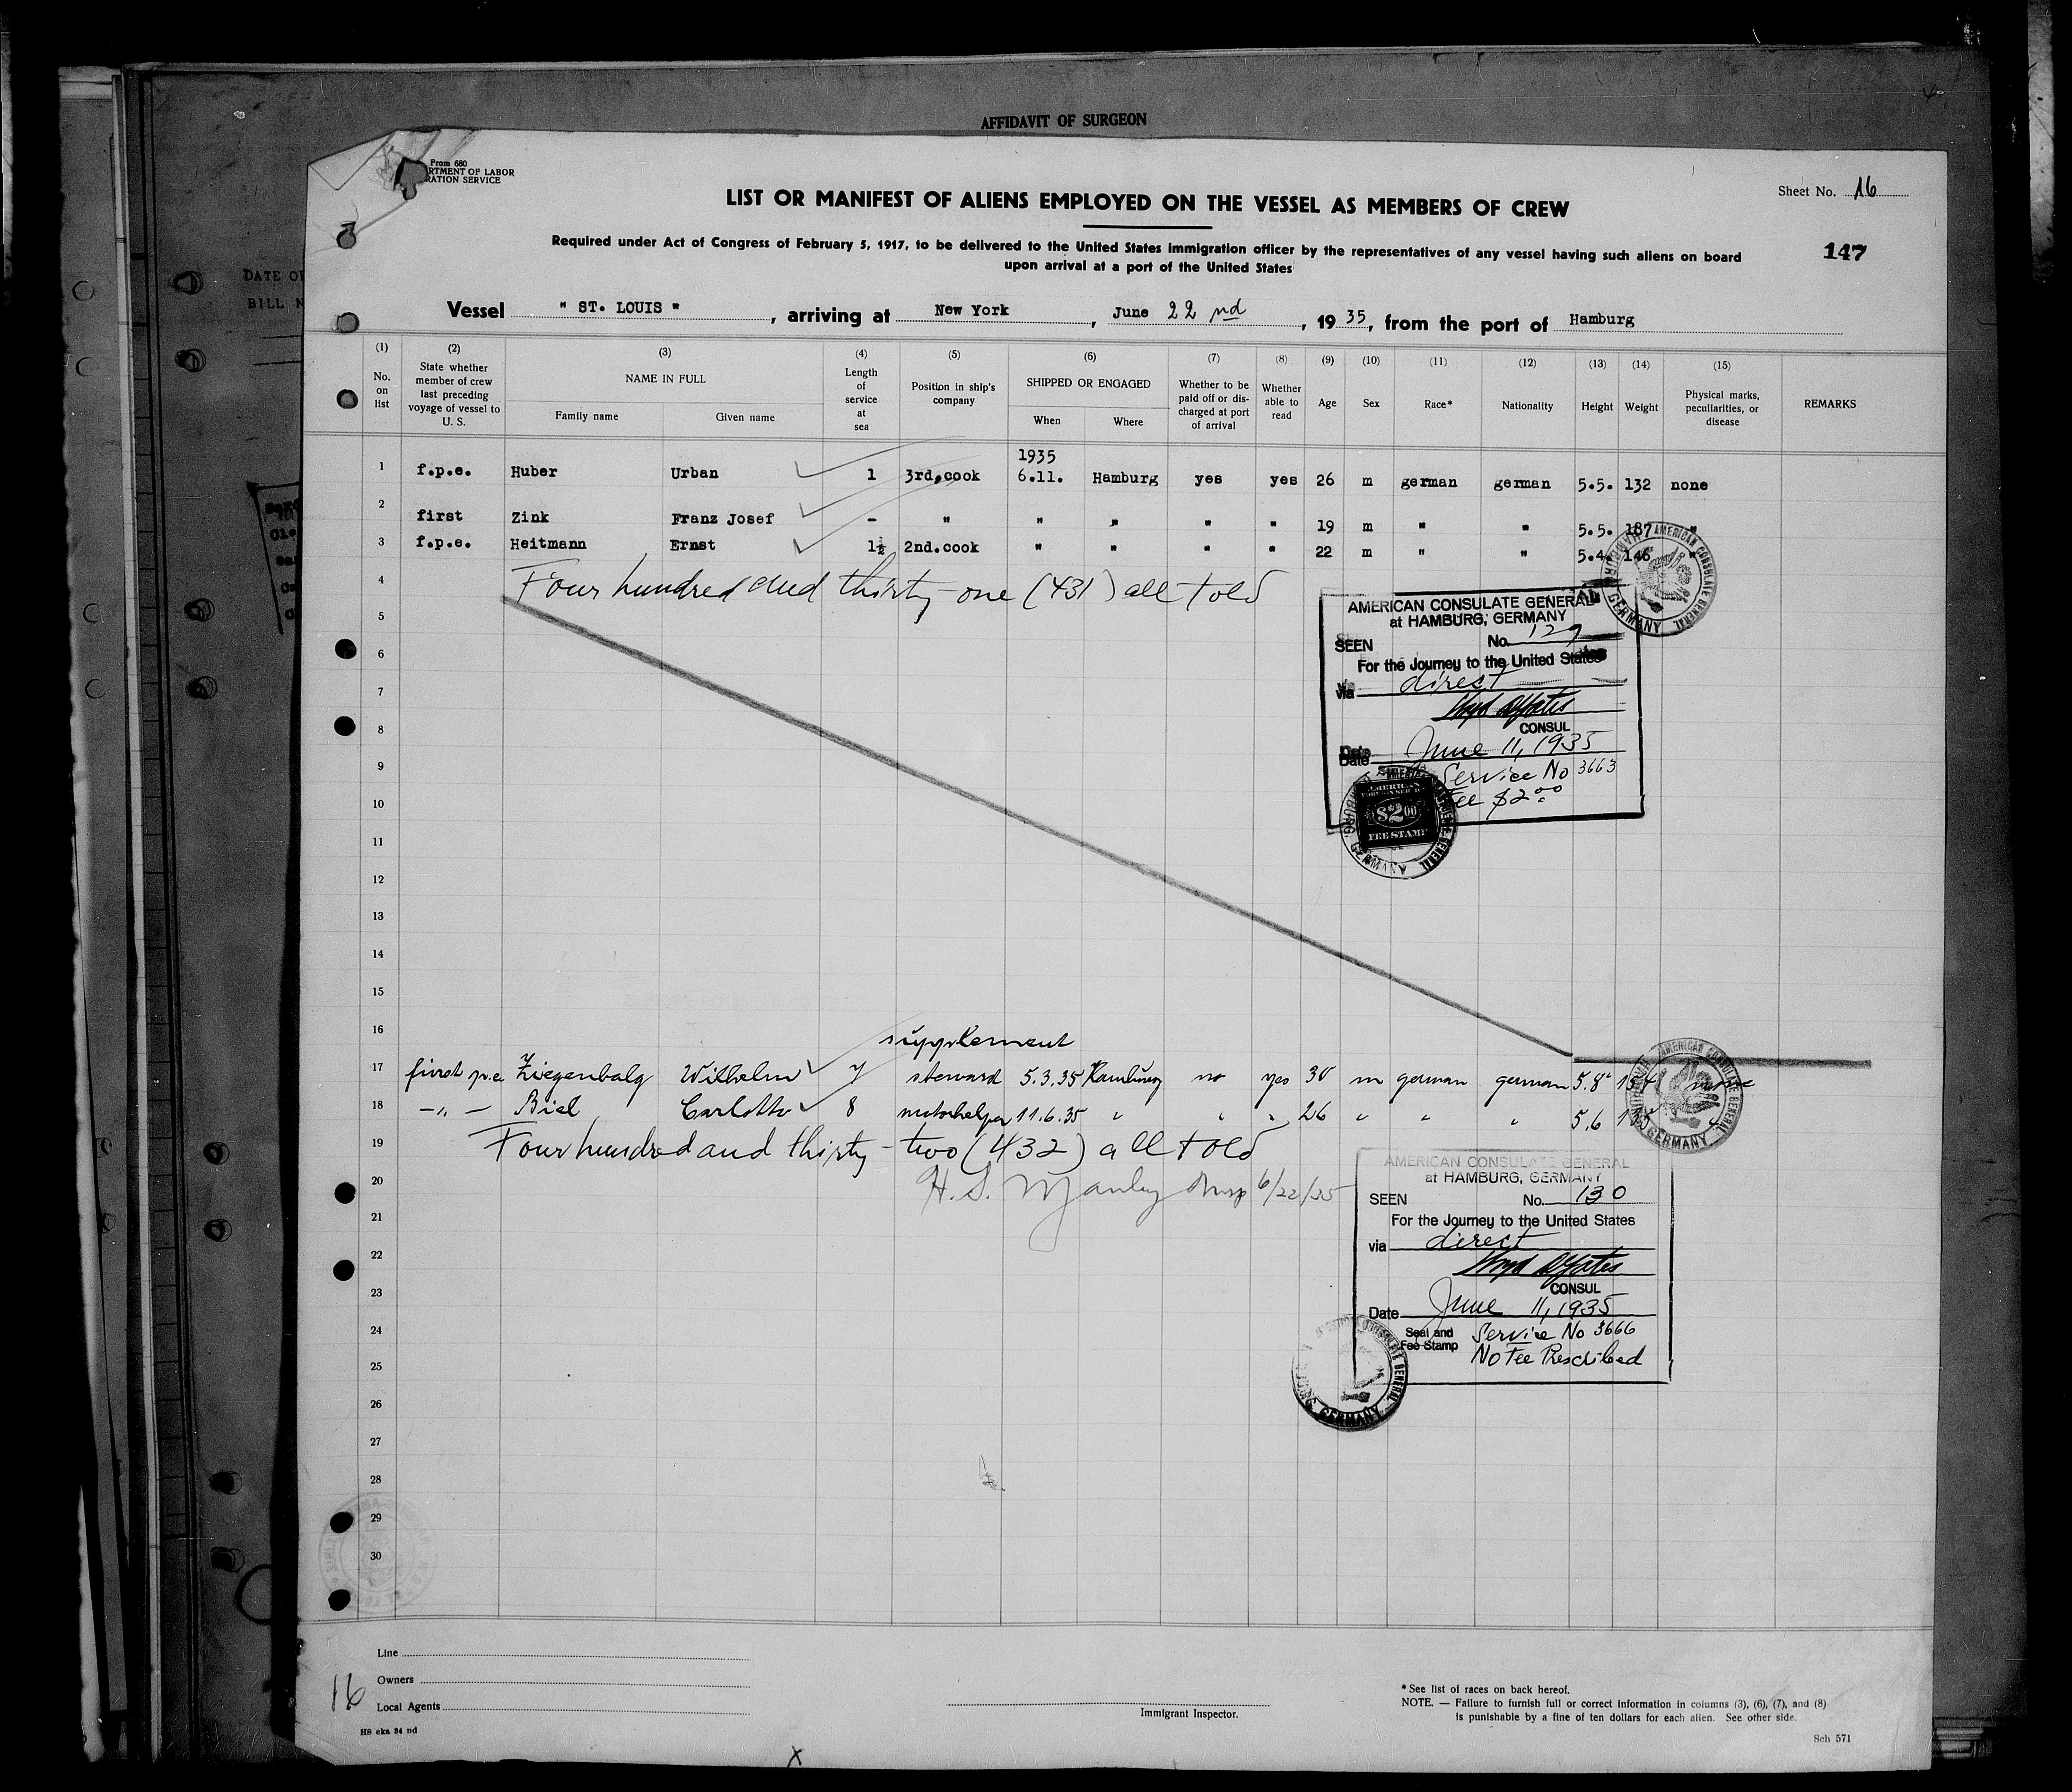 AFFIDAVIT OF SURGEON
From 680
RTMENT OF LABOR
RATION SERVICE
DATE OF
BILL N
LIST OR MANIFEST OF ALIENS EMPLOYED ON THE VESSEL AS MEMBERS OF CREW
Sheet No. 16
Required under Act of Congress of February 5, 1917, to be delivered to the United States immigration officer by the representatives of any vessel having such aliens on board
upon arrival at a port of the United States
147
Vessel " ST. LOUIS ", arriving at New York, June 22nd, 1935, from the port of Hamburg
(1) (2) (3) (4) (5) (6) (7) (8) (9) (10) (11) (12) (13) (14) (15)
No. on list
State whether member of crew last preceding voyage of vessel to U. S.
NAME IN FULL
Family name Given name
Length of service at sea
Position in ship's company
SHIPPED OR ENGAGED
When Where
Whether to be paid off or discharged at port of arrival
Whether able to read
Age
Sex
Race*
Nationality
Height
Weight
Physical marks, peculiarities, or disease
REMARKS
1935
1 f.p.e. Huber Urban 1 3rd.cook 6.11. Hamburg yes yes 26 m german german 5.5. 132 none
2 first Zink Franz Josef - " " " " " 19 m " " 5.5. 187 "
3 f.p.e. Heitmann Ernst 1½ 2nd.cook " " " " 22 m " " 5.4. 146 "
4 Four hundred and thirty-one (431) all told
5
6
7
8
9
10
11
12
13
14
15
AMERICAN CONSULATE GENERAL
at HAMBURG, GERMANY
SEEN No. 129
For the Journey to the United States
via direct
CONSUL
Date June 11, 1935
Service No 3663
Fee $2.00
AMERICAN
$2.00
FEE STAMP
AMERICAN CONSULATE GENERAL HAMBURG, GERMANY
16 supplement
17 first p.e. Ziegenbalg Wilhelm 7 steward 5.3.35 Hamburg no yes 30 m german german 5.8 none
18 -"- Biel Carlotto 8 11.6.35 " " " 26 " " " 5.6 135 "
19 Four hundred and thirty-two (432) all told
20 H. S. Manley Insp 6/22/35
21
22
23
24
25
26
27
28
29
30
AMERICAN CONSULATE GENERAL HAMBURG, GERMANY
AMERICAN CONSULATE GENERAL
at HAMBURG, GERMANY
SEEN No. 130
For the Journey to the United States
via direct
CONSUL
Date June 11, 1935
Seal and Fee Stamp Service No 3666
No Fee Prescribed
Line
Owners
Local Agents
16
H8 eka 34 nd
Immigrant Inspector.
*See list of races on back hereof.
NOTE. — Failure to furnish full or correct information in columns (3), (6), (7), and (8)
is punishable by a fine of ten dollars for each alien. See other side.
Sch 571
x